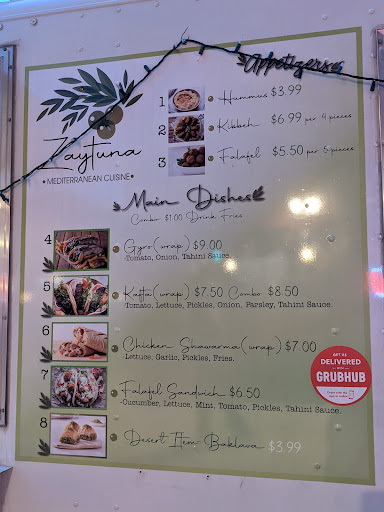 Appetizers
Zaytuna
• MEDITERRANEAN CUISINE •
1 • Hummus $3.99
2 • Kibbeh $6.99 per 4 pieces
3 • Falafel $5.50 per 5 pieces
Main Dishes
Combo $1.00 Drink Fries
4 • Gyro (wrap) $9.00
-Tomato, Onion, Tahini Sauce.
5 • Kafta (wrap) $7.50 Combo $8.50
-Tomato, Lettuce, Pickles, Onion, Parsley, Tahini Sauce.
6 • Chicken Shawarma (wrap) $7.00
-Lettuce, Garlic, Pickles, Fries.
7 • Falafel Sandwich $6.50
-Cucumber, Lettuce, Mint, Tomato, Pickles, Tahini Sauce.
8 • Desert Item Baklava $3.99
GET US
DELIVERED
WITH
GRUBHUB